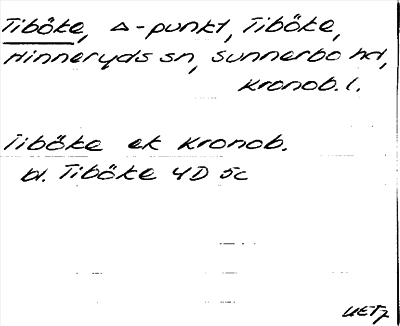 Tiböke, Δ-punkt, Tiböke,
Hinneryds sn, Sunnerbo hd,
Kronob. l.
Tiböke ek Kronob.
bl. Tiböke 4D 5c